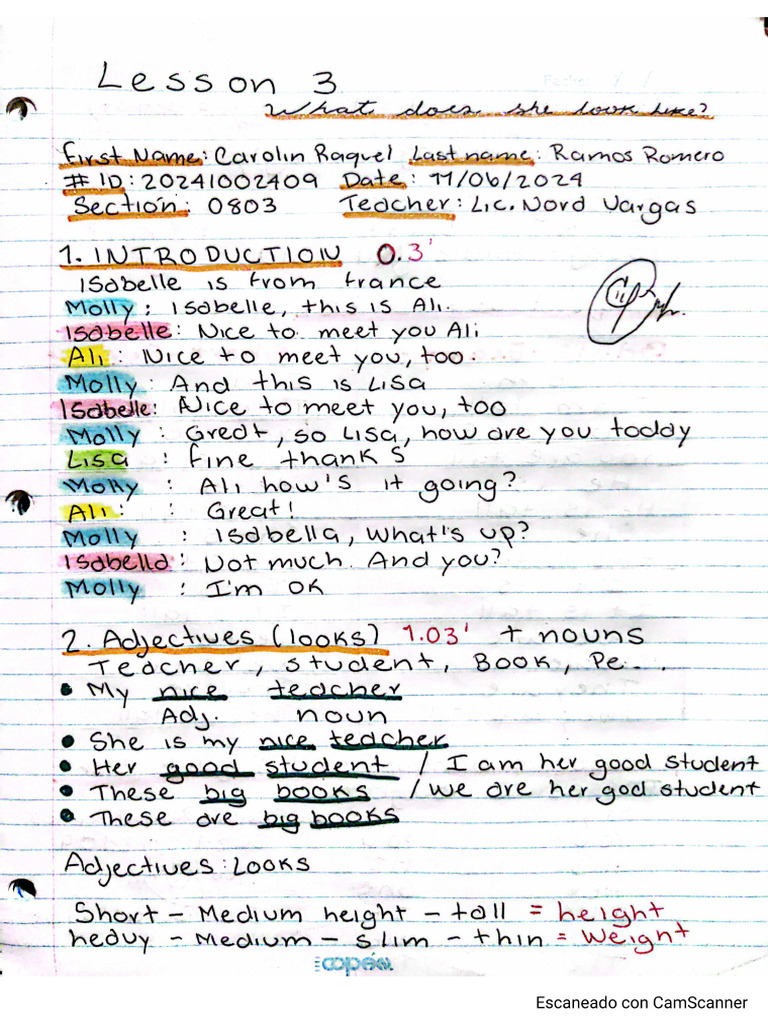 Lesson 3
What does she look like?
First Name: Carolin Raquel Last name: Ramos Romero
# ID: 20241002409 Date: 11/06/2024
Section: 0803 Teacher: Lic. Nord Vargas
1. INTRODUCTION 0.3'
Isabelle is from france
Molly: Isabelle, this is Ali.
Isabelle: Nice to meet you Ali
Ali: Nice to meet you, too.
Molly: And this is Lisa
Isabelle: Nice to meet you, too
Molly: Great, so Lisa, how are you today
Lisa: fine thanks
Molly: Ali how's it going?
Ali: Great!
Molly: Isabella, what's up?
Isabella: Not much. And you?
Molly: I'm OK
2. Adjectives (looks) 1.03' + nouns
Teacher, student, Book, Pe....
• My nice teacher
Adj. noun
• She is my nice teacher
• Her good student / I am her good student
• These big books / we are her god student
• These are big books
Adjectives: Looks
Short - Medium height - tall = height
heavy - Medium - slim - thin = weight
copán
Escaneado con CamScanner